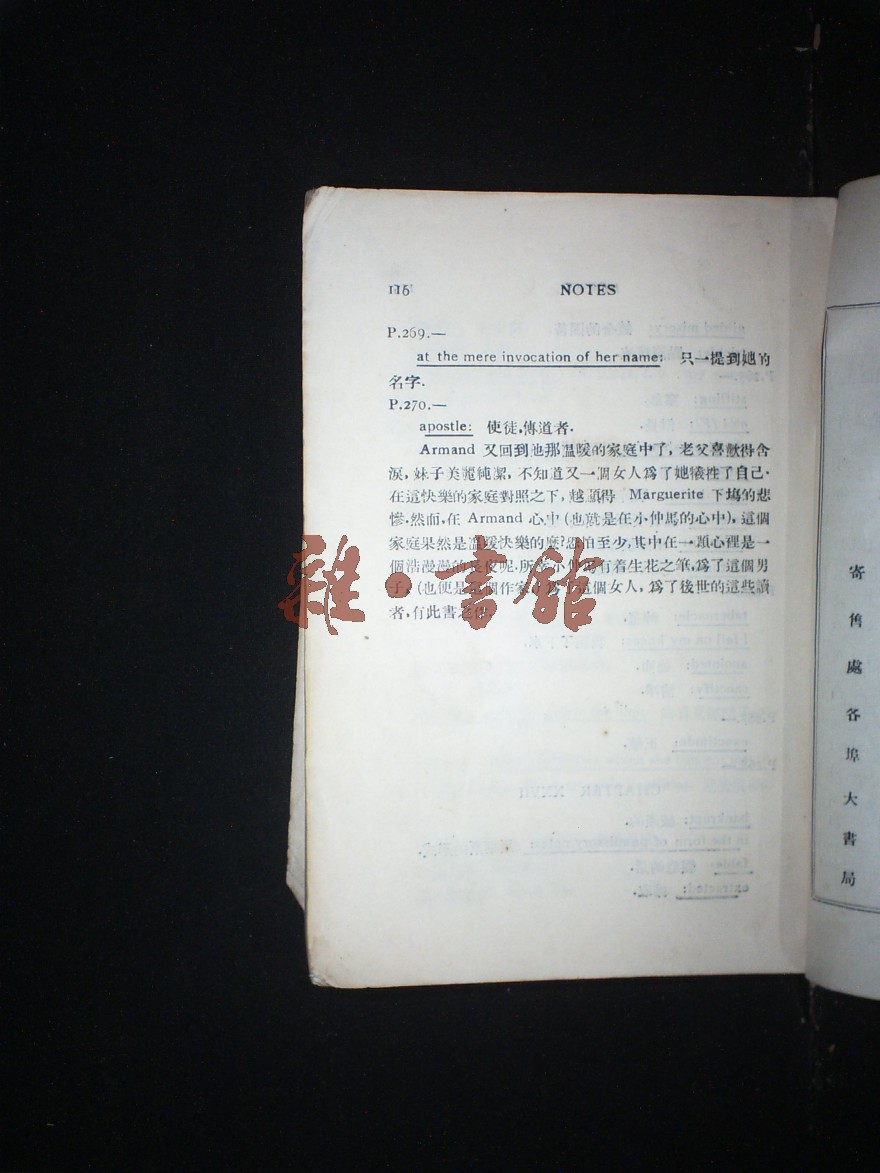 116 NOTES
P.269.—
at the mere invocation of her name: 只一提到她的
名字.
P.270.—
apostle: 使徒,傳道者.
Armand 又回到他那溫暖的家庭中了, 老父喜歡得含
淚, 妹子美麗純潔, 不知道又一個女人爲了她犧牲了自己.
在這快樂的家庭對照之下, 越顯得 Marguerite 下塲的悲
慘.然而,在 Armand 心中 (也就是在小仲馬的心中), 這個
家庭果然是溫暖快樂的麽?恐怕至少,其中在一顆心裡是一
個浩漫漫的長夜呢.所幸小仲馬有着生花之筆,爲了這個男
子, (也便是這個作家) 爲了這個女人, 爲了後世的這些讀
者,有此書之作.
雜·書館
寄售處各埠大書局
CHAPTER XXVII